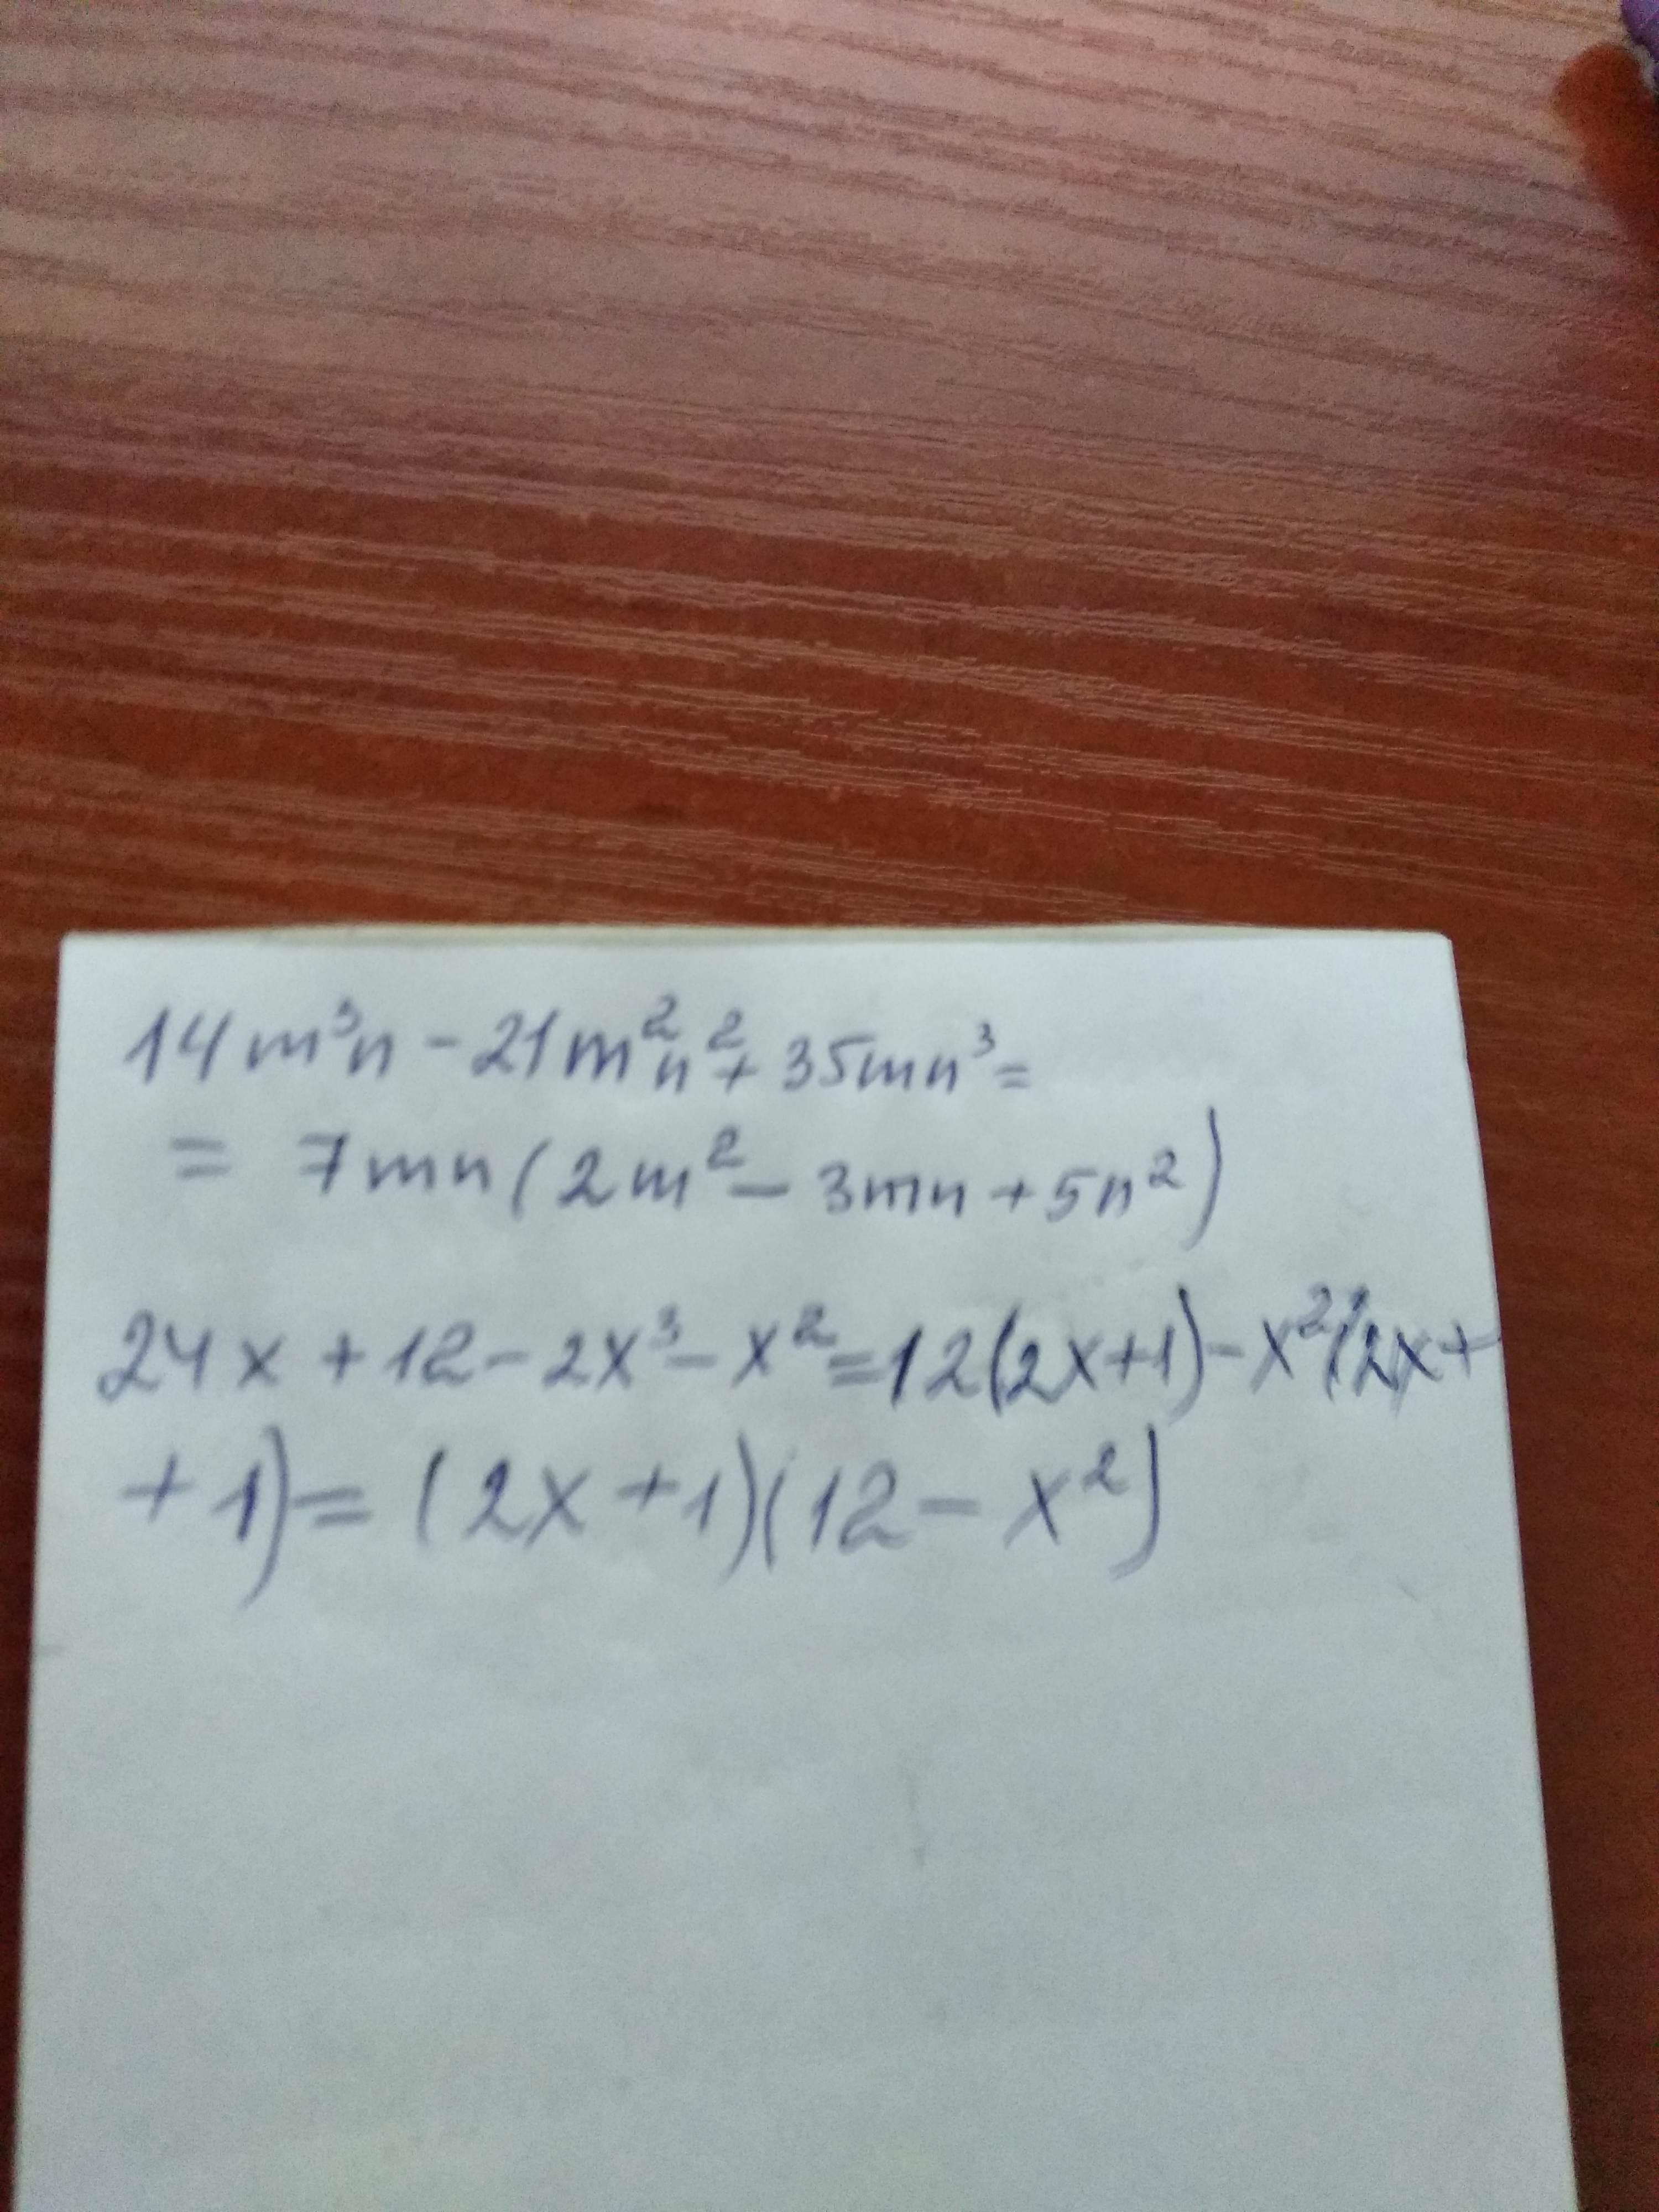 14m³n - 21m²n² + 35mn³ =
= 7mn(2m² - 3mn + 5n²)
24x + 12 - 2x³ - x² = 12(2x+1) - x²(2x+
+1) = (2x+1)(12 - x²)